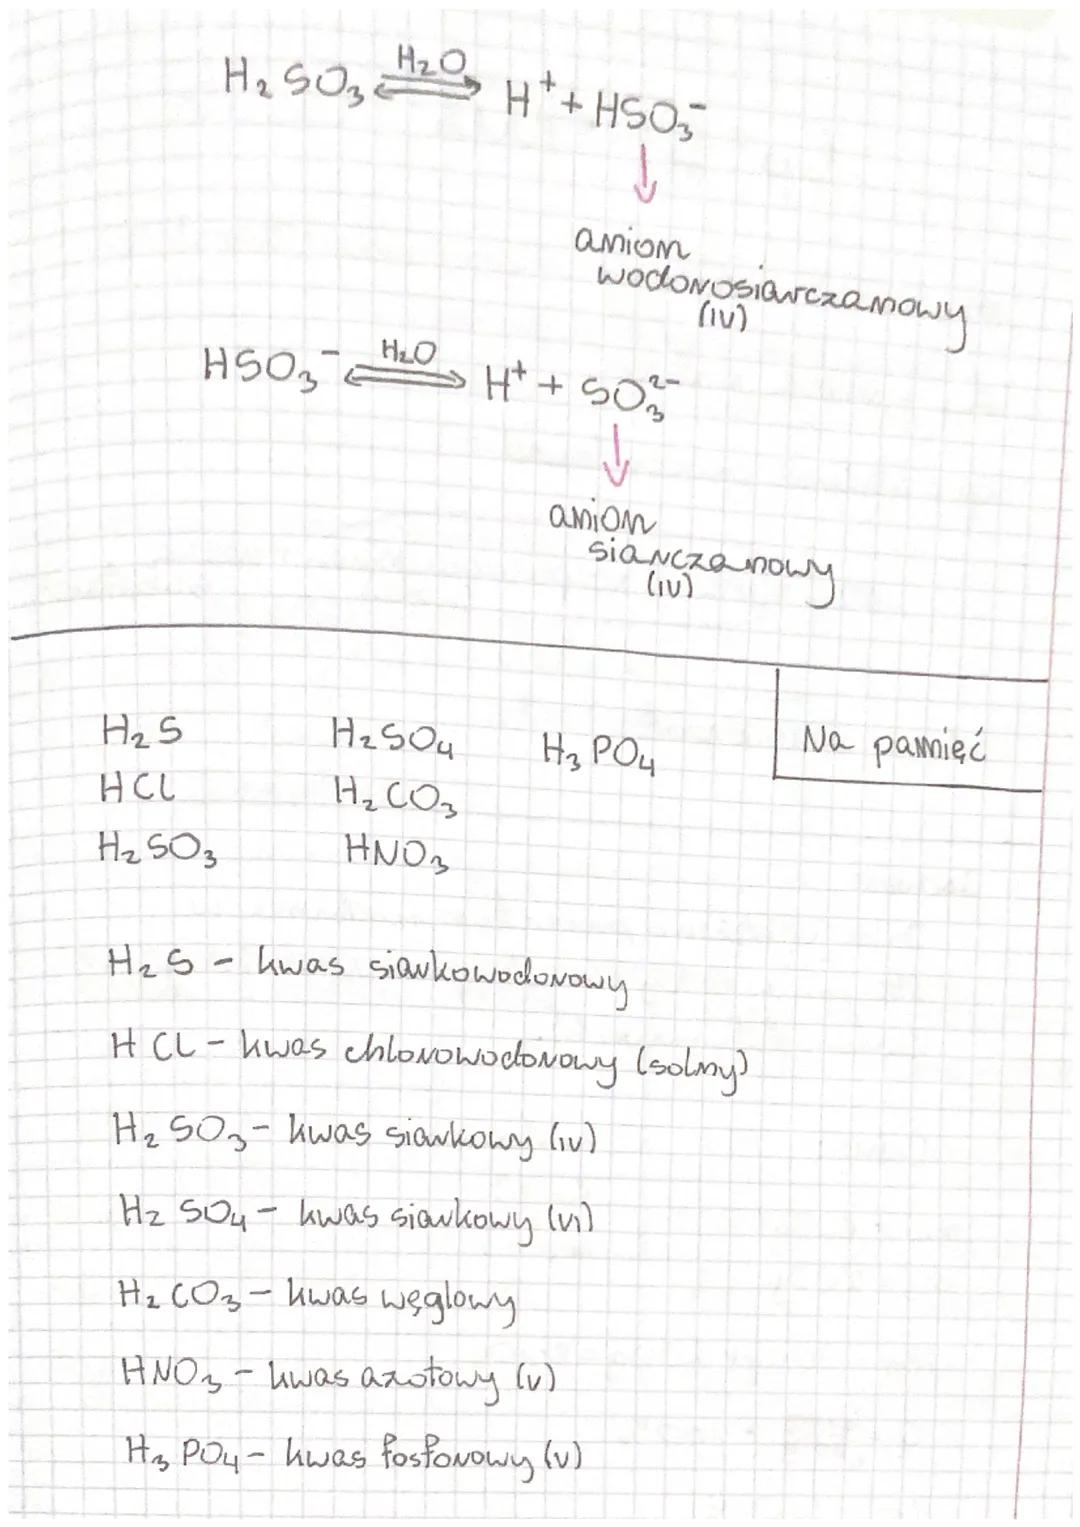 H₂SO₃ ⇌ H₂O H⁺ + HSO₃⁻
anion
wodorosiarczanowy
(IV)
HSO₃⁻ ⇌ H₂O H⁺ + SO₃²⁻
anion
siarczanowy
(IV)
H₂S H₂SO₄ H₃PO₄ Na pamięć
HCl H₂CO₃
H₂SO₃ HNO₃
H₂S - kwas siarkowodorowy
HCl - kwas chlorowodorowy (solny)
H₂SO₃ - kwas siarkowy (IV)
H₂SO₄ - kwas siarkowy (VI)
H₂CO₃ - kwas węglowy
HNO₃ - kwas azotowy (V)
H₃PO₄ - kwas fosforowy (V)